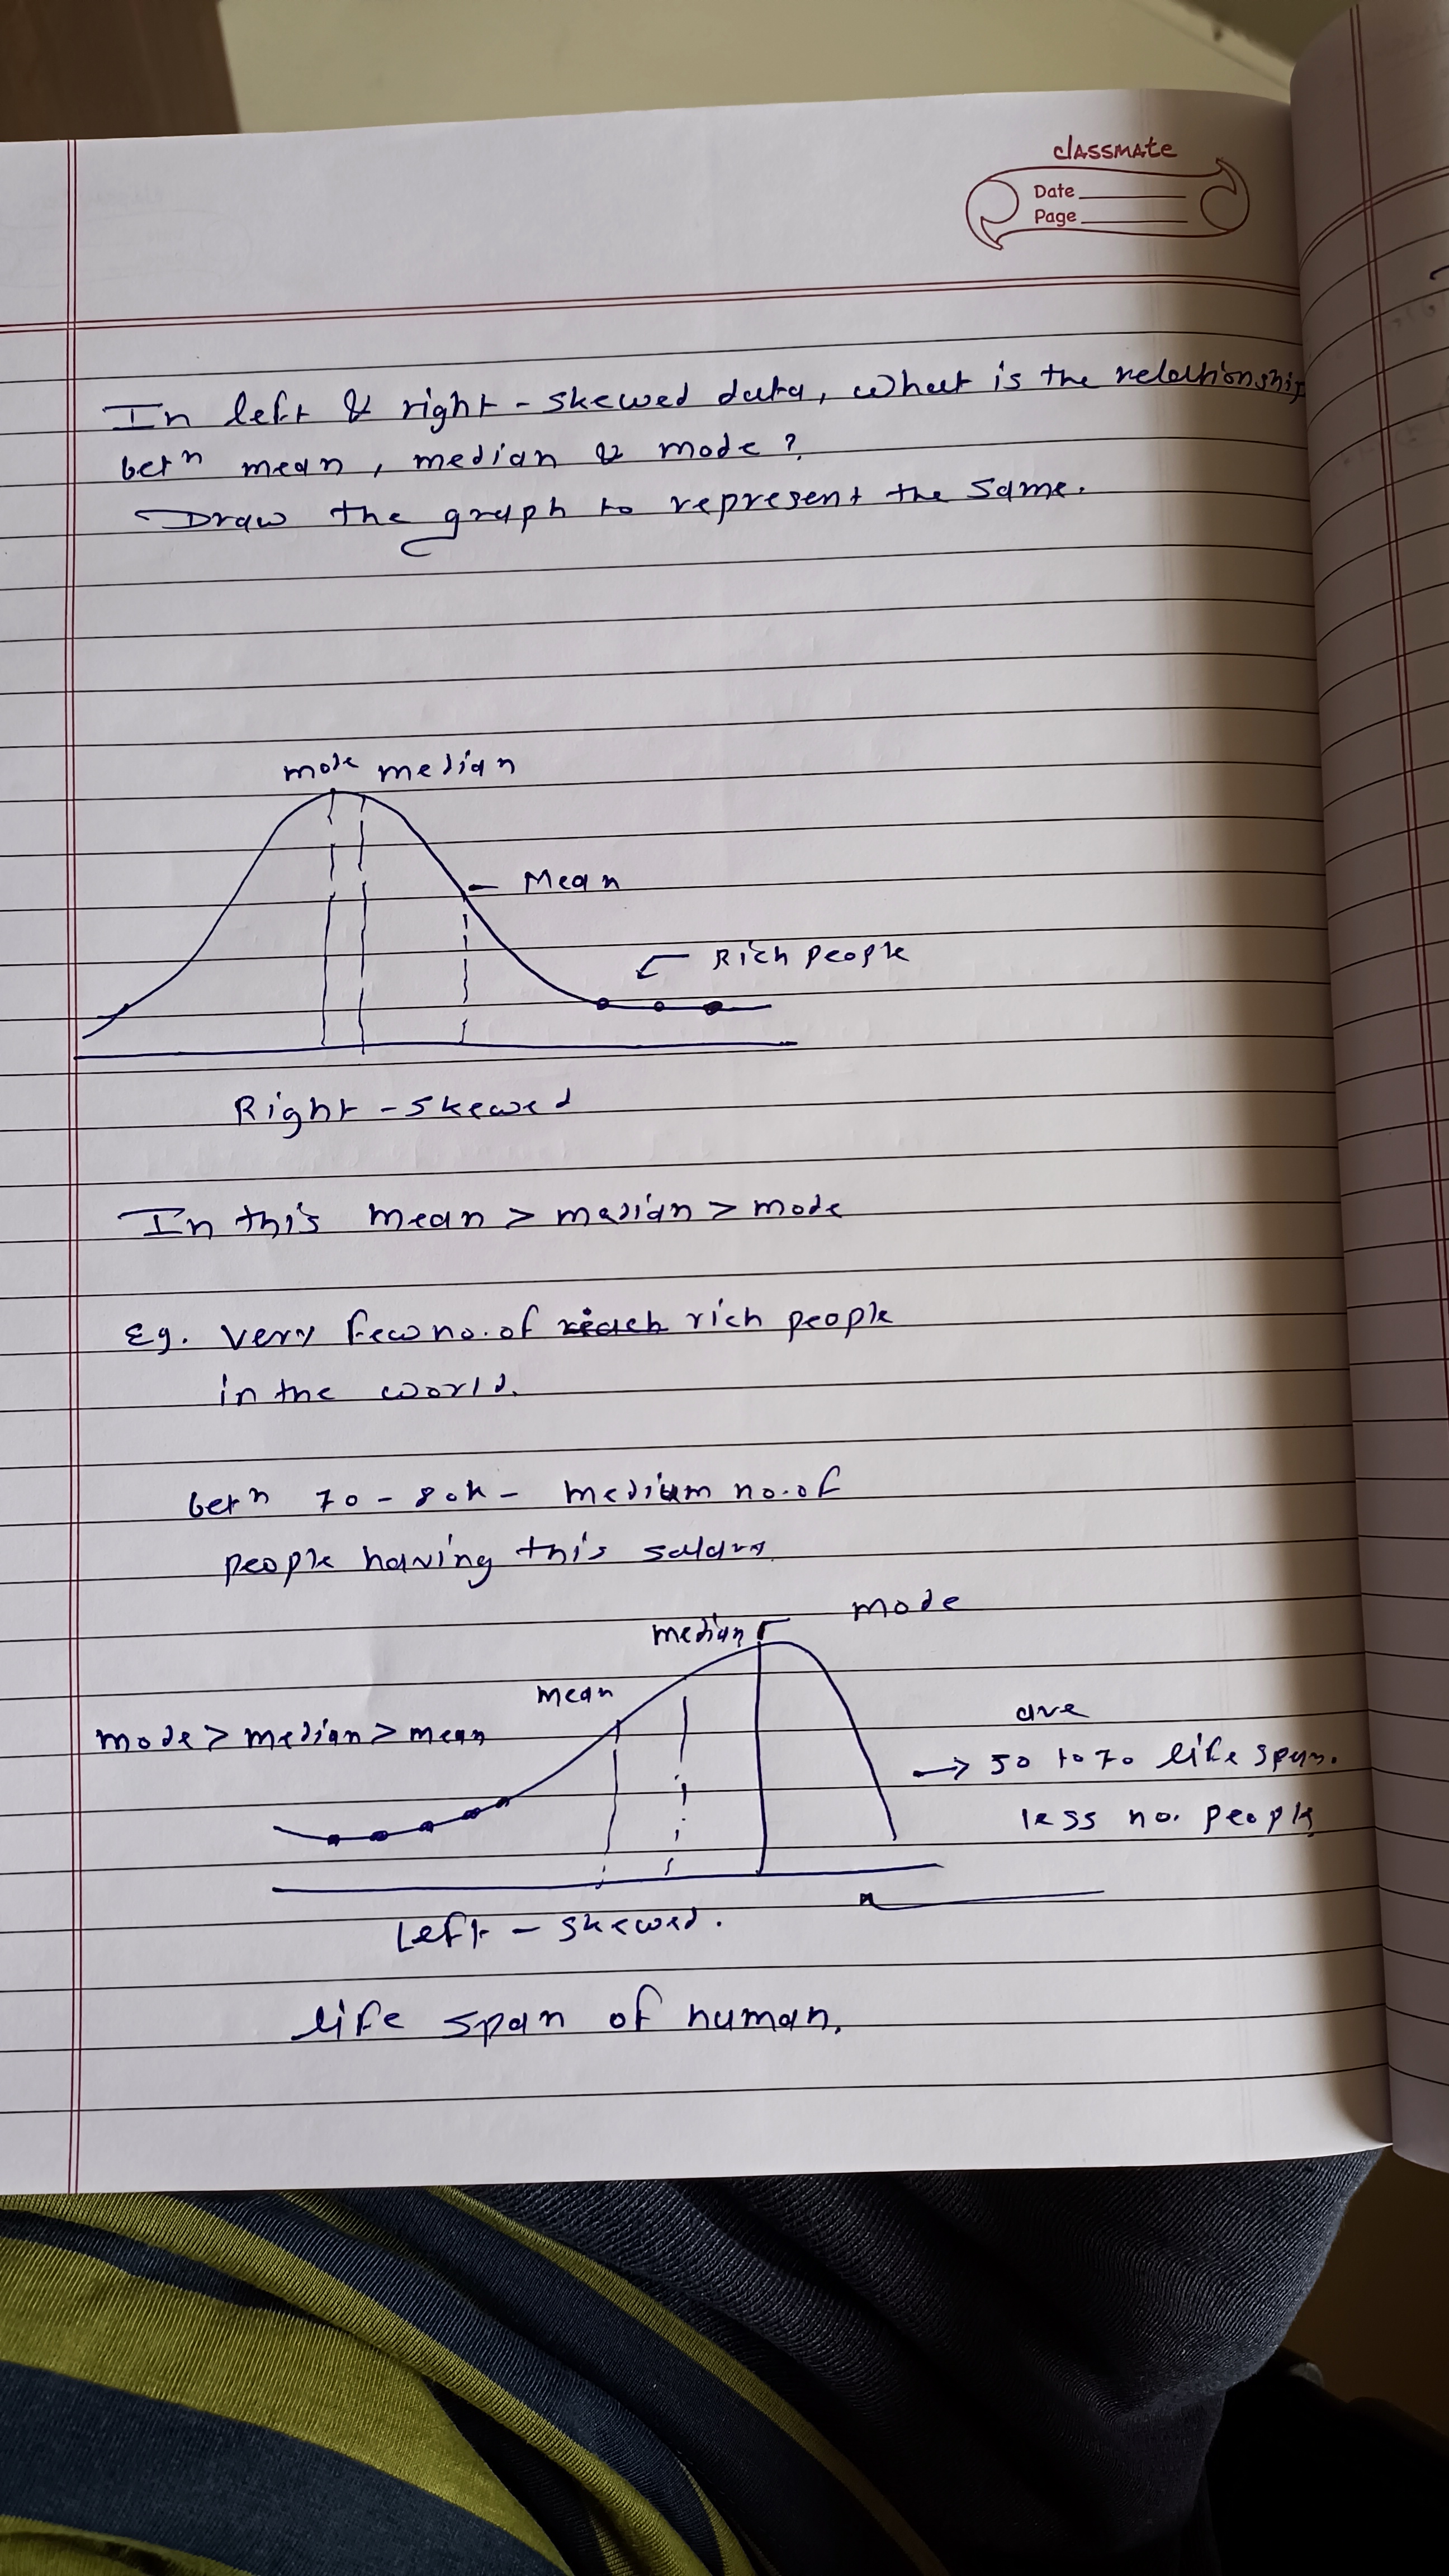 classmate
Date
Page
In left & right - skewed data, what is the relationship
betⁿ mean, median & mode?
Draw the graph to represent the same.
mode median
Mean
Rich people
Right - skewed
In this mean > median > mode
Eg. very few no. of rich people
in the world.
betⁿ 70 - 80k - medium no. of
people having this salary
mode
median
mean
mode > median > mean
ave
→ 50 to 70 life span.
less no. people
Left - skewed.
life span of human.